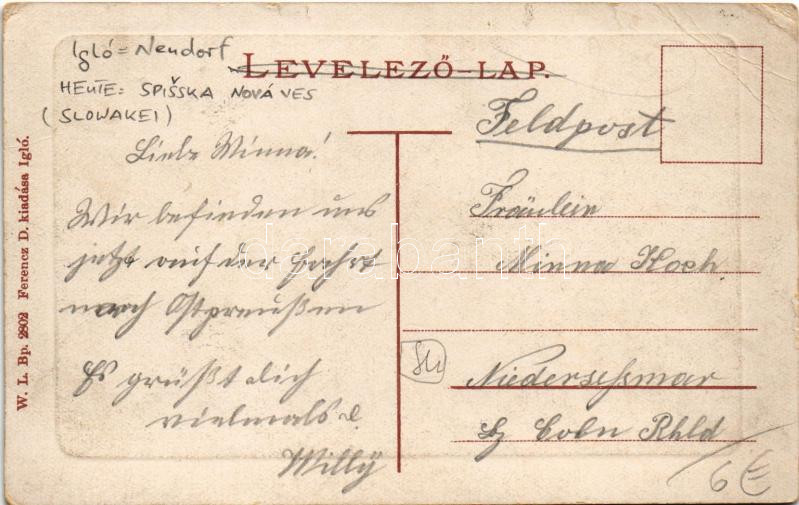 Igló = Neudorf
HEUTE: SPIŠSKA NOVÁ VES
(SLOWAKEI)
LEVELEZŐ-LAP.
W. L. Bp. 2802 Ferencz D. kiadása Igló.
Liebe Minna!
Wir befinden uns
jetzt auf der Fahrt
nach Ostpreußen
Es grüßt dich
vielmals d.
Willy
Feldpost
Fräulein
Minna Hoch.
Niedersessmar
Bz Coln Rhld
6 €
darabanth